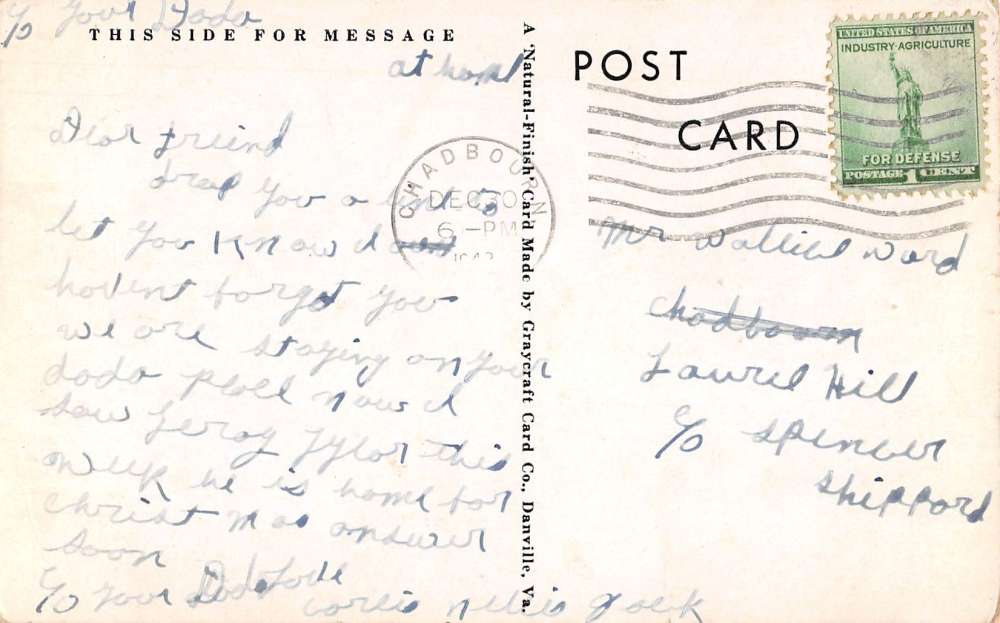 c/o Your Dada
THIS SIDE FOR MESSAGE
at home
Dear friend
drop you a line to
let you know I
havent forget you
we are staying on your
dada place now I
saw Leroy Tylor this
week he is home for
christmas answer
soon
c/o Your Dada
A 'Natural-Finish' Card Made by Graycraft Card Co., Danville, Va.
POST
CARD
CHADBOURN
DEC 30
6 -PM
N
UNITED STATES OF AMERICA
INDUSTRY-AGRICULTURE
FOR DEFENSE
POSTAGE 1 CENT
Mr Ward
Chadbourn
Laurel Hill
c/o Spencer
Shippard